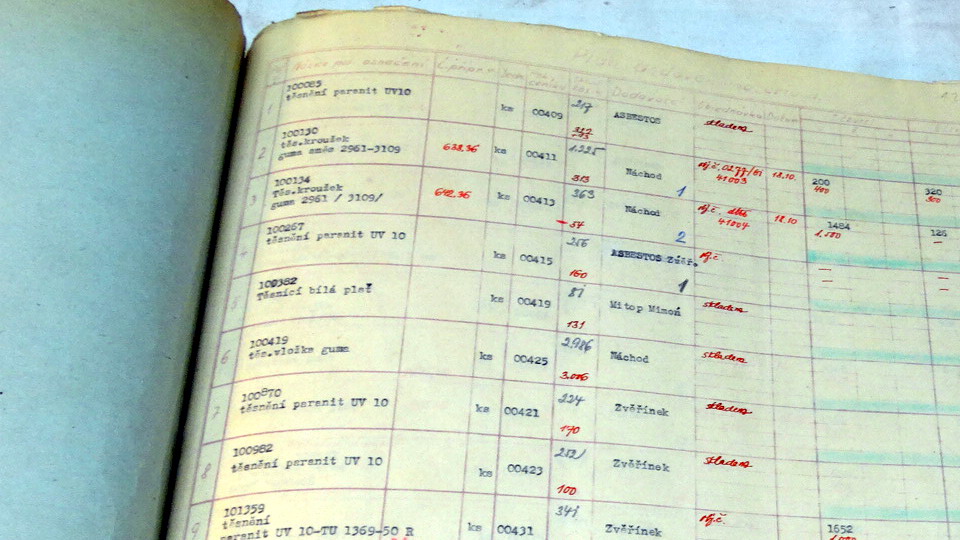 Dodavatel Objednávka Datum
1 100085
těsnění paranit UV10 ks 00409 217 ASBESTOS skladem
2 100130
těs.kroužek
guma směs 2961-3109 638.36 ks 00411 1.225 Náchod 41003 18.10. 200 320
313 1 400 300
3 100134
Těs.kroužek
guma 2961 / 3109/ 642.36 ks 00413 363 Náchod 41004 18.10 1484 126
54 2 1.500 -
4 100267
těsnění paranit UV 10 ks 00415 256 ASBESTOS Zvěř. obj.č. - -
160 1 - -
5 100382
Těsnící bílá plsť ks 00419 81 Mitop Mimoň skladem
131
6 100419
těs.vložka guma ks 00425 2.986 Náchod skladem
3.006
7 100870
těsnění paranit UV 10 ks 00421 224 Zvěřínek skladem
170
8 100982
těsnění paranit UV 10 ks 00423 212 Zvěřínek skladem
100
9 101359
těsnění
paranit UV 10-TU 1369-50 R ks 00431 341 Zvěřínek obj.č. 1652